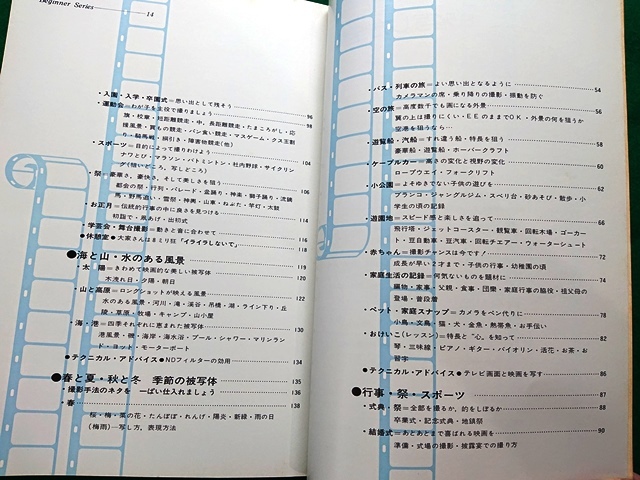 Beginner Series 14
・入園・入学・卒園式＝思い出として残そう 96
・運動会＝わが子を主役で撮りましょう 98
旗・校章・短距離競走・中、長距離競走・たまころがし・応
援風景・買もの競走・パン食い競走・マスゲーム・クス玉割
り・騎馬戦・綱引き・障害物競走(他)
・スポーツ＝目的によって撮りわけよう 104
ナワとび・マラソン・バトミントン・社内野球・サイクリン
グ(傾いどころ、写しどころ)
・祭＝豪華さ、豪快さ、そして美しさを狙う 106
都会の祭・行列・パレード・盆踊り・神楽・獅子踊り・流鏑
馬・野馬追い・雪祭・神輿・山車・ねぶた・竿灯・太鼓
・お正月＝伝統的行事の中に良さを見つける 114
初詣で・泉あげ・出初式
・学芸会・舞台撮影＝動きと音に合わせて 116
●休憩室●大家さんはまミリ狂「イライラしないで」 118
●海と山・水のある風景 119
・太 陽＝きわめて映画的な美しい被写体 120
木洩れ日・夕陽・朝日
・山と高原＝ロングショットが映える風景 122
水のある風景・河川・滝・渓谷・吊橋・湖・ライン下り・丘
陵・草原・牧場・キャンプ・山小屋
・海・港＝四季それぞれに恵まれた被写体 130
港風景・磯・海岸・海水浴・プール・シャワー・マリンラン
ド・ヨット・モーターボート
●テクニカル・アドバイス●NDフィルターの効用 134
●春と夏・秋と冬 季節の被写体 135
・撮影手法のネタを 一ぱい仕入れましょう 136
・春 138
桜・梅・菜の花・たんぽぽ・れんげ・陽炎・新緑・雨の日
(梅雨)―写し方、表現方法
・バス・列車の旅＝よい思い出となるように 54
カメラマンの席・乗り降りの撮影・振動を防ぐ
・空の旅＝高度数千でも画になる外景 56
翼の上は撮りにくい・EEのままでOK・外景の何を狙うか
空港を狙うなら…
・遊覧船・汽船＝すれ違う船・特長を狙う 58
豪華船・遊覧船・ホーバークラフト
・ケーブルカー＝高さの変化と視野の変化 60
ロープウエイ・フォークリフト
・小公園＝よそゆきでない子供の遊びを 62
ブランコ・ジャングルジム・スベリ台・砂あそび・散歩・小
学生の頃の記録
・遊園地＝スピード感と楽しさを追って 66
飛行塔・ジェットコースター・観覧車・回転木馬・ゴーカー
ト・豆自動車・豆汽車・回転チエアー・ウォーターシュート
・赤ちゃん＝撮影チャンスは今ですゾ 72
成長が早い2才まで・子供の行事・幼稚園の頃
・家庭生活の記録＝何気ないものを題材に 74
編物・家事・父親・食事・団欒・家庭行事の脇役・祖父母の
登場・普段着
・ペット・家庭スナップ＝カメラをペン代りに 78
小鳥・文鳥・猫・犬・金魚・熱帯魚・お手伝い
・おけいこ(レッスン)＝特長と“心”を知って 82
琴・三味線・ピアノ・ギター・バイオリン・活花・お茶・お
習字
●テクニカル・アドバイス●テレビ画面と映画を写す 86
●行事・祭・スポーツ 87
・式典・祭＝全部を撮るか、的をしぼるか 88
卒業式・記念式典・地鎮祭
・結婚式＝あとあとまで喜ばれる映画を 90
準備・式場の撮影・披露宴での撮り方